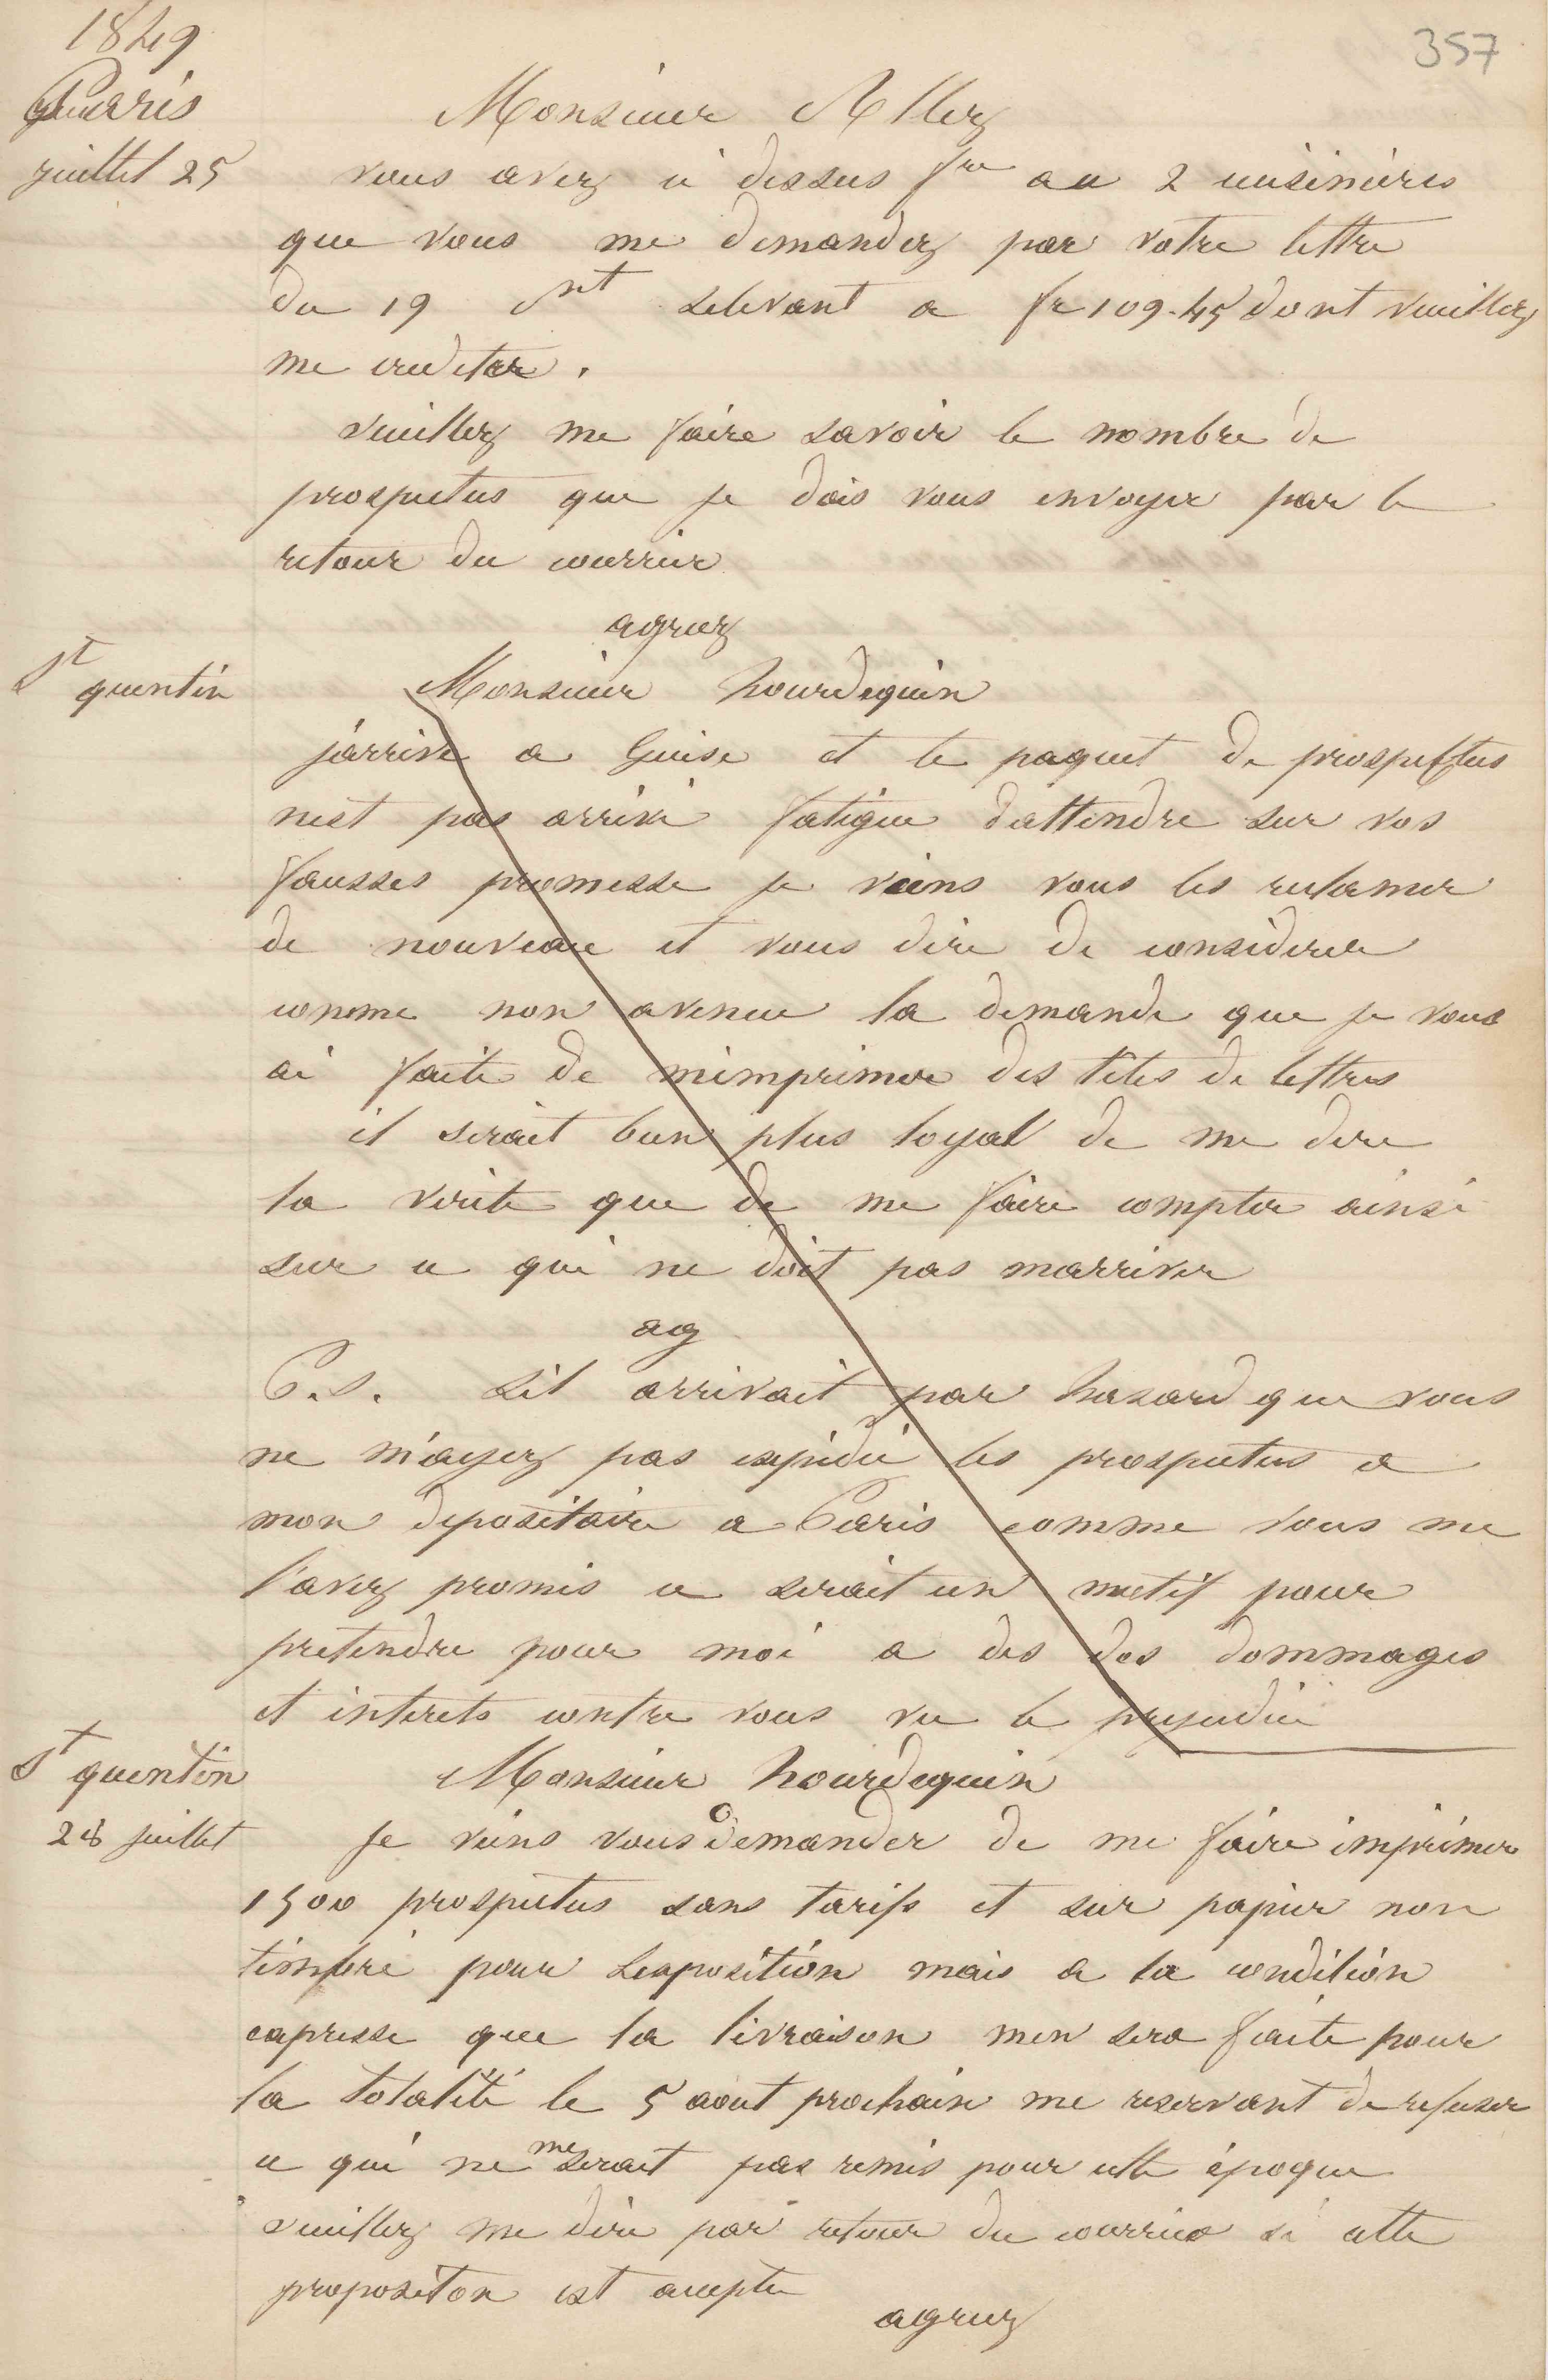 1849
357
Paris
Monsieur Allez
juillet 25
vous avez ci dessus fre au 2 cuisinières
que vous me demandez par votre lettre
du 19 ct selevant a fr 109.45 dont veuillez
me crediter.
veuillez me faire savoir le nombre de
prospectus que je dois vous envoyer par le
retour du courrier
agreez
St quentin
Monsieur hourdequin
j'arrive a Guise et le paquet de prospectus
nest pas arrivé fatigue d'attendre sur vos
fausses promesse je viens vous les reclamer
de nouveau et vous dire de considerer
comme non avenue la demande que je vous
ai faite de m'imprimer des têtes de lettres
il serait bien plus loyal de me dire
la verite que de me faire compter ainsi
sur ce qui ne doit pas marriver
ag
P.S. sil arrivait par hasard que vous
ne m'ayez pas expedié les prospectus a
mon depositaire a Paris comme vous me
l'avez promis ce serait un motif pour
pretendre pour moi a des des dommages
et interets contre vous vu le prejudice
St quentin
Monsieur hourdequin
28 juillet
Je viens vous demander de me faire imprimer
1500 prospectus sans tarifs et sur papier non
timbré pour lexposition mais a la condition
expresse que la livraison men sera faite pour
la totalité le 5 aout prochain me reservant de refuser
ce qui ne me serait pas remis pour cette époque
veuillez me dire par retour du courrier si cette
propositon est accepte
agreez